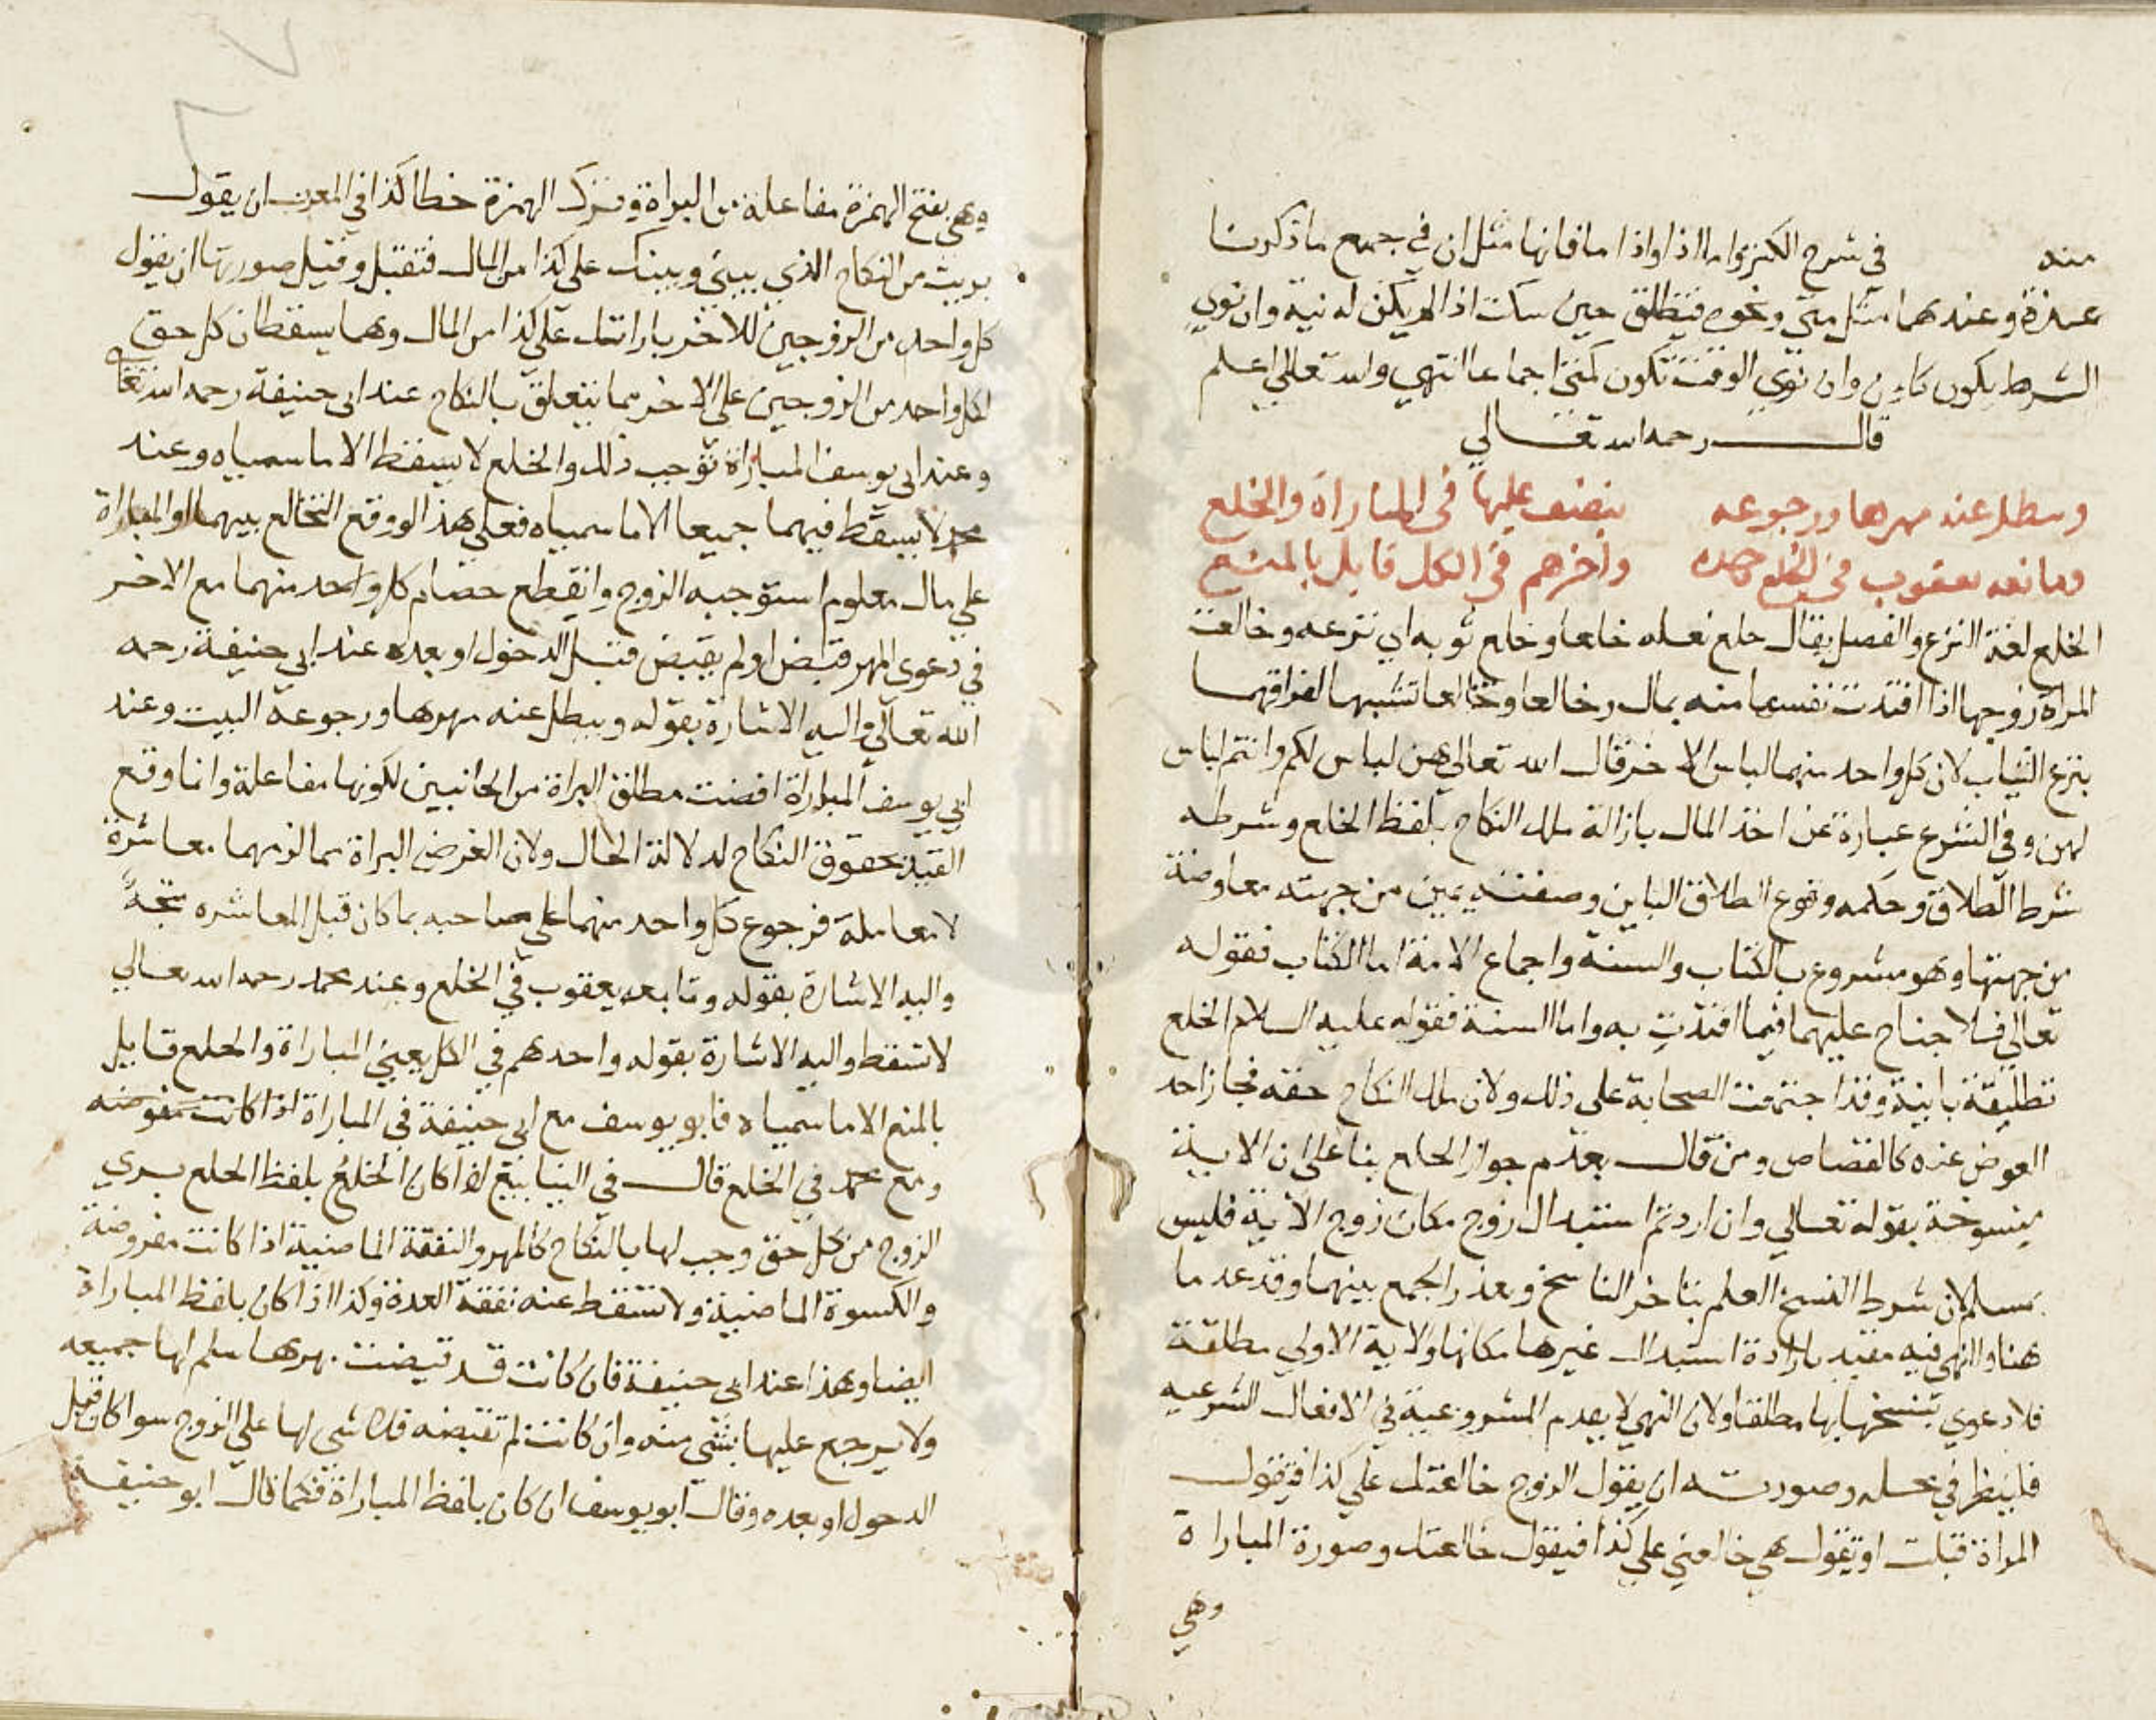 منه في شرح الكنز واما اذا واذا ما فانها مثل ان في جميع ما ذكرنا
عنده وعندهما مثل متى ونحوه فتطلق حين سكت اذا لم يكن له نية وان نوي
الشرط يكون كان وان نوي الوقت تكون كمتى اجماعا انتهي والله تعالي اعلم
قال رحمه الله تعالي
وسطل عنه مهرها ورجوعه بنصف عليها في المباراة والخلع
وتابعه يعقوب في الخلع وحده واخرهم في الكل قايل بالمنع
الخلع لغة النزع والفصل يقال خلع نعله خلعا وخلع ثوبه اي نزعه وخالعت
المراة زوجها اذا افتدت نفسها منه بمال وخالعا وتخالعا تشبيها لفراقهما
بنزع الثياب لان كل واحد منهما لباس الاخر قال الله تعالي هن لباس لكم وانتم لباس
لهن وفي الشرع عبارة عن اخذ المال بازالة ملك النكاح بلفظ الخلع وشرطه
شرط الطلاق وحكمه وقوع الطلاق الباين وصفته يمين من جهته معاوضة
من جهتها وهو مشروع بالكتاب والسنة واجماع الامة اما الكتاب فقوله
تعالي فلا جناح عليهما فيما افتدت به واما السنة فقوله عليه السلام الخلع
تطليقة باينة وقد اجتمعت الصحابة على ذلك ولان ملك النكاح حقه فجاز اخذ
العوض عنه كالقصاص ومن قال بعدم جواز الخلع بنا على ان الاية
منسوخة بقوله تعالي وان اردتم استبدال زوج مكان زوج الاية فليس
بمسلم لان شرط النسخ العلم بتاخر الناسخ وتعذر الجمع بينهما وقد عدما
هنا والنهي فيه مقيد بارادة استبدال غيرها مكانها والاية الاولي مطلقة
فلا دعوي بنسخها بها مطلقا ولان النهي لا يعدم المشروعية في الافعال الشرعيه
فلينظر في محله وصورته ان يقول الزوج خالعتك علي كذا فتقول
المراة قبلت او تقول هي خالعني علي كذا فيقول خالعتك وصورة المباراة
وهي
وهي بفتح الهمزة مفاعلة من البراة وترك الهمزة خطا كذا في المغرب ان يقول
بريت من النكاح الذي بيني وبينك على كذا من المال فتقبل وقيل صورتها ان يقول
كل واحد من الزوجين للاخر باراتك علي كذا من المال وهما يسقطان كل حق
لكل واحد من الزوجين على الاخر مما يتعلق بالنكاح عند ابي حنيفة رحمه الله تعالى
وعند ابي يوسف المباراة توجب ذلك والخلع لا يسقط الا ما سمياه وعند
محمد لا يسقط فيهما جميعا الا ما سمياه فعلي هذا لو وقع التخالع بينهما او المباراة
علي مال معلوم استوجبه الزوج وانقطع خصام كل واحد منهما مع الاخر
في دعوى المهر قبض او لم يقبض قبل الدخول او بعده عند ابي حنيفة رحمه
الله تعالي واليه الاشارة بقوله ويبطل عنه مهرها ورجوعه البيت وعند
ابي يوسف المباراة اقضت مطلق البراة من الجانبين لكونها مفاعلة وانما وقع
القيد بحقوق النكاح لدلالة الحال ولان الغرض البراة مما لزمهما معاشرة
لا معاملة فرجوع كل واحد منهما على صاحبه بما كان قبل المعاشره
واليه الاشارة بقوله وتابعه يعقوب في الخلع وعند محمد رحمه الله تعالي
لا تسقط واليه الاشارة بقوله واحدهم في الكل يعني المباراة والخلع قايل
بالمنع الا ما سمياه فابو يوسف مع ابي حنيفة في المباراة اذا كانت مفروضه
ومع محمد في الخلع قال في الينابيع اذا كان الخلع بلفظ الخلع يبري
الزوج من كل حق وجب لها بالنكاح كالمهر والنفقة الماضية اذا كانت مفروضة
والكسوة الماضية ولا تسقط عنه نفقة العدة وكذا اذا كان بلفظ المباراة
ايضا وهذا عند ابي حنيفة فان كانت قد قبضت مهرها سلم لها جميعه
ولا يرجع عليها بشي منه وان كانت لم تقبضه فلا شي لها علي الزوج سوا كان قبل
الدخول او بعده وقال ابو يوسف ان كان بلفظ المباراة فكما قال ابو حنيفة